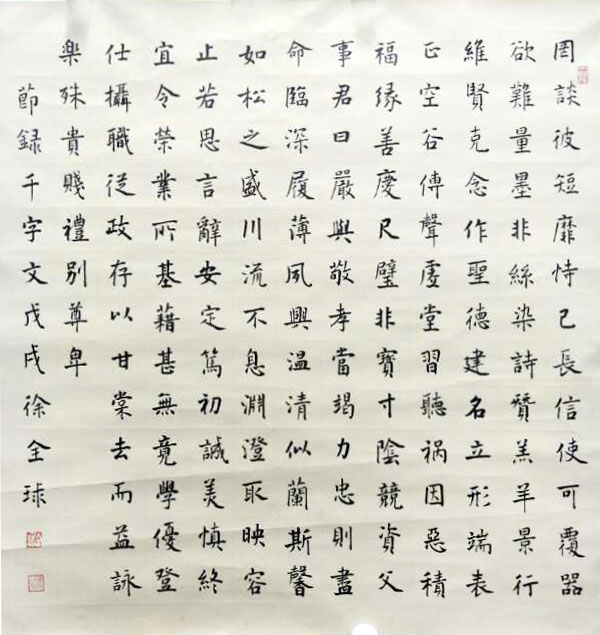 罔談彼短靡恃己長信使可覆器
欲難量墨非絲染詩贊羔羊景行
維賢克念作聖德建名立形端表
正空谷傳聲虛堂習聽禍因惡積
福緣善慶尺璧非寶寸陰競資父
事君曰嚴與敬孝當竭力忠則盡
命臨深履薄夙興溫清似蘭斯馨
如松之盛川流不息淵澄取映容
止若思言辭安定篤初誠美慎終
宜令榮業所基藉甚無竟學優登
仕攝職從政存以甘棠去而益詠
樂殊貴賤禮別尊卑
節録千字文戊戌徐全球